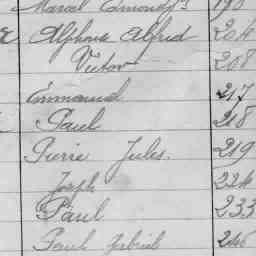 Marcel Edmond 190
Alphonse Alfred 204
Victor 208
Emmanuel 217
Paul 218
Pierre Jules. 219
Joseph 224
Paul 233
Paul Gabriel 246